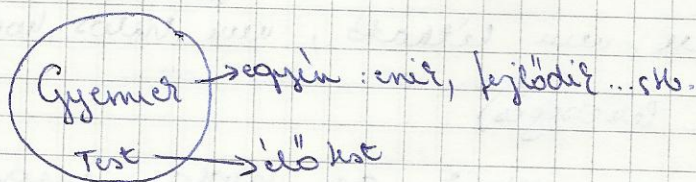 Gyermek → egyén : érik, fejlődik ... stb.
Test → élő test